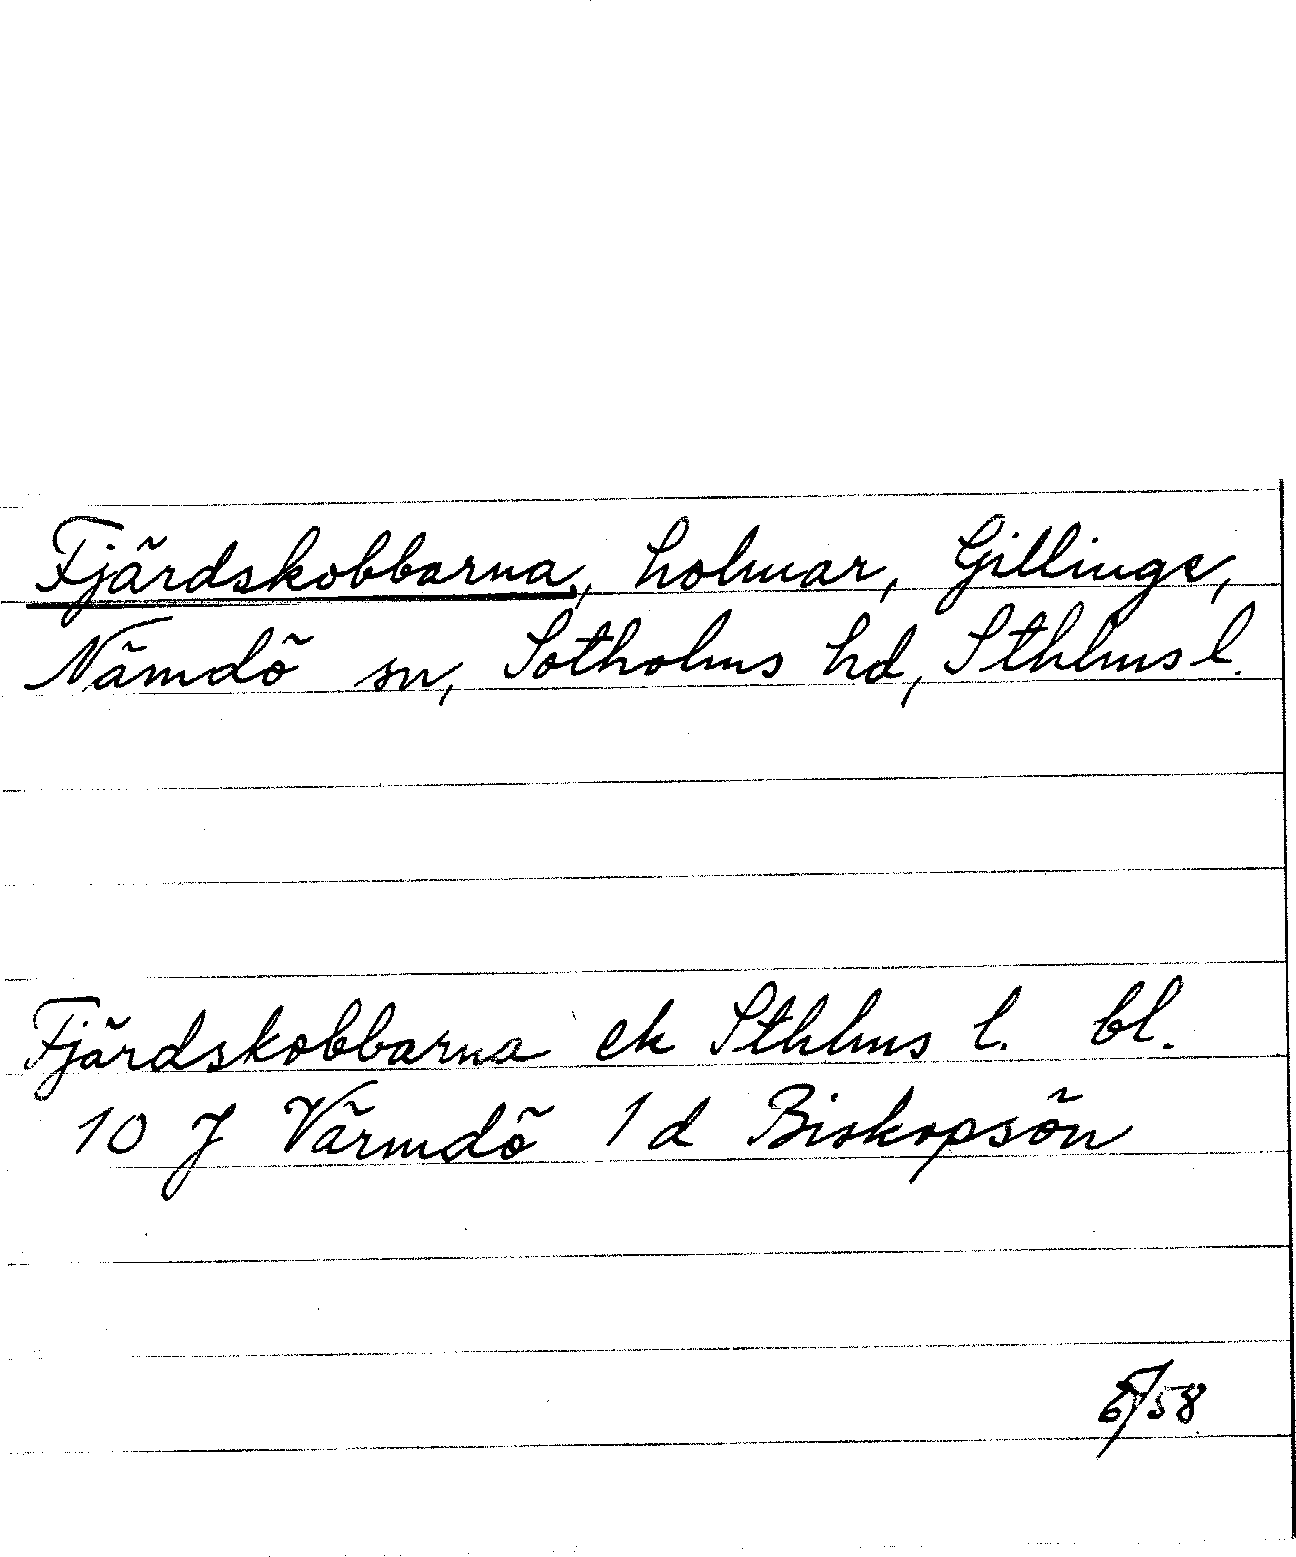 Fjärdskobbarna, holmar, Gillinge,
Nämdö sn, Sotholms hd, Sthlms l.
Fjärdskobbarna ek Sthlms l. bl.
10 J Värmdö 1 d Biskopsön
/58